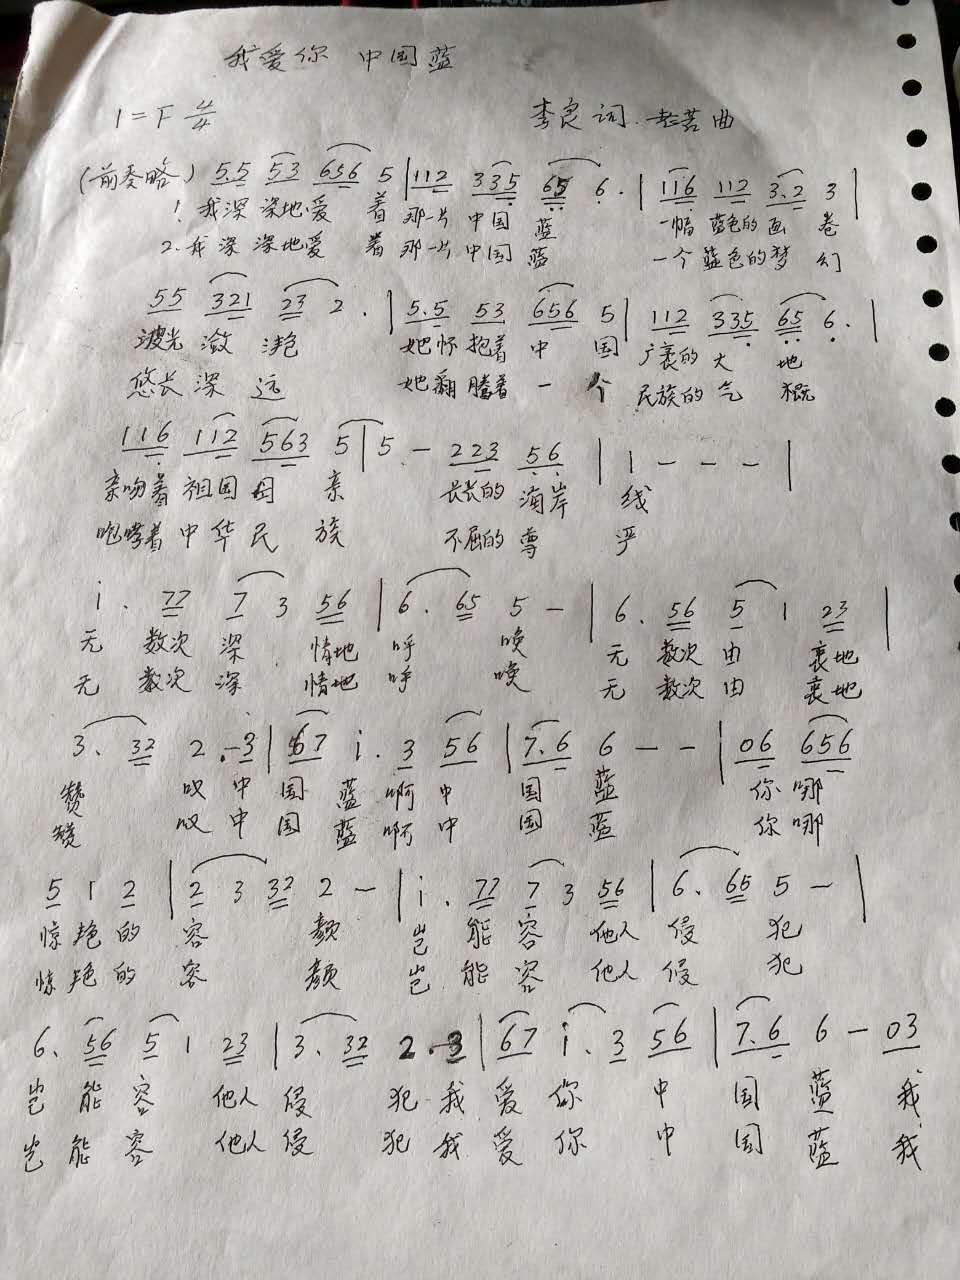 我爱你 中国蓝
1=F 4/4 李良词. 曲
(前奏略) 5.5 53 656 5 | 112 335 65 6. | 116 112 3.2 3 |
1. 我深深地爱 着 那一片 中国 蓝 一幅 蓝色的画 卷
2. 我深深地爱 着 那一片 中国 蓝 一个 蓝色的梦 幻
55 321 23 2. | 5.5 53 656 5 | 112 335 65 6. |
波光 潋 滟 她怀 抱着 中 国 广袤的 大 地
悠长 深 远 她翻 腾着 一 个 民族的 气 概
116 112 563 5 | 5 - 223 56 | 1 - - - |
亲吻着 祖国 母 亲 长长的 海岸 线
咆哮着 中华 民 族 不屈的 尊 严
i. 77 7 3 56 | 6. 65 5 - | 6. 56 5 1 23 |
无 数次 深 情地 呼 唤 无 数次 由 衷地
无 数次 深 情地 呼 唤 无 数次 由 衷地
3. 32 2. 3 | 67 i. 3 56 | 7.6 6 - - | 06 656
赞 叹 中 国 蓝 啊 中 国 蓝 你 哪
赞 叹 中 国 蓝 啊 中 国 蓝 你 哪
5 1 2 | 2 3 32 2 - | i. 77 7 3 56 | 6. 65 5 - |
惊 艳 的 容 颜 岂 能 容 他人 侵 犯
惊 艳 的 容 颜 岂 能 容 他人 侵 犯
6. 56 5 1 23 | 3. 32 2. 3 | 67 i. 3 56 | 7.6 6 - 03
岂 能 容 他人 侵 犯 我 爱 你 中 国 蓝 我
岂 能 容 他人 侵 犯 我 爱 你 中 国 蓝 我